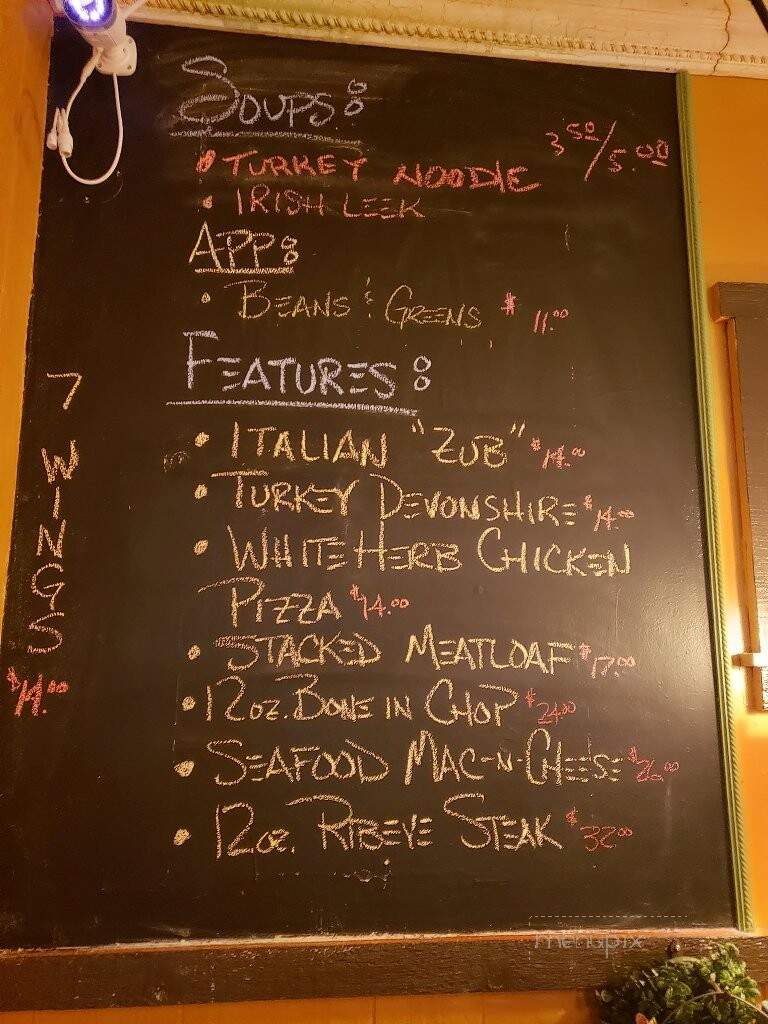 SOUPS:
• TURKEY NOODLE 3 50/5.00
• IRISH LEEK
APP:
• BEANS & GREENS $11.00
FEATURES:
• ITALIAN "ZUB" $14.00
• TURKEY DEVONSHIRE $14.00
• WHITE HERB CHICKEN
PIZZA $14.00
• STACKED MEATLOAF $17.00
• 12oz. BONE IN CHOP $24.00
• SEAFOOD MAC-N-CHEESE $26.00
• 12oz. RIBEYE STEAK $32.00
7
W
I
N
G
S
$14.00
menupix